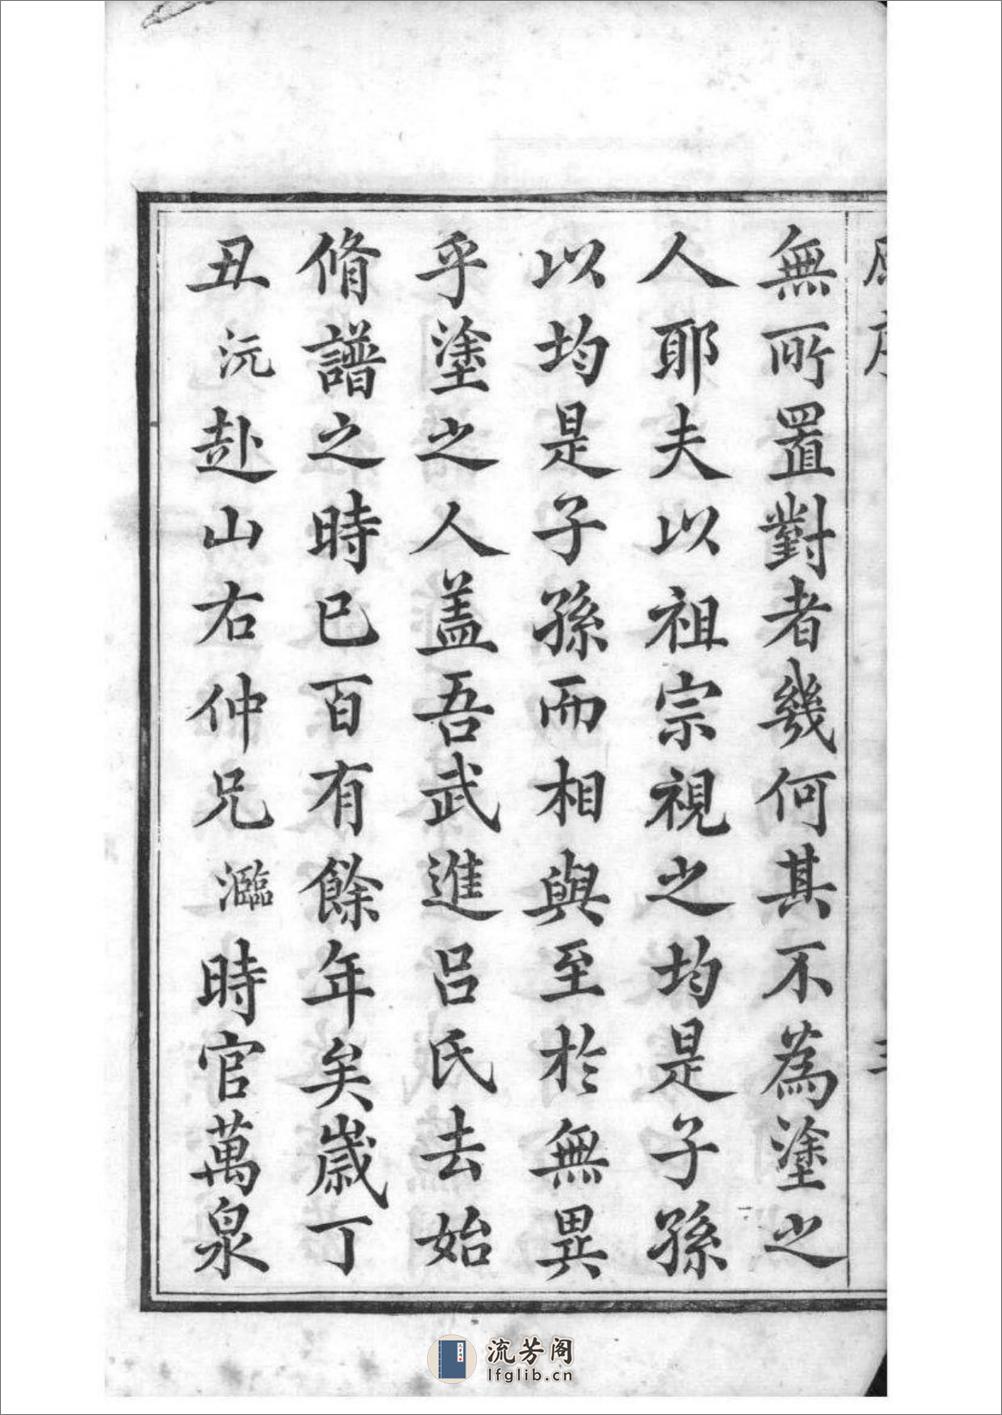 無所置對者幾何其不為塗之
人耶夫以祖宗視之均是子孫
以均是子孫而相與至於無異
乎塗之人盖吾武進呂氏去始
脩譜之時已百有餘年矣歲丁
丑沅赴山右仲兄灜時官萬泉
流芳阁
lfglib.cn